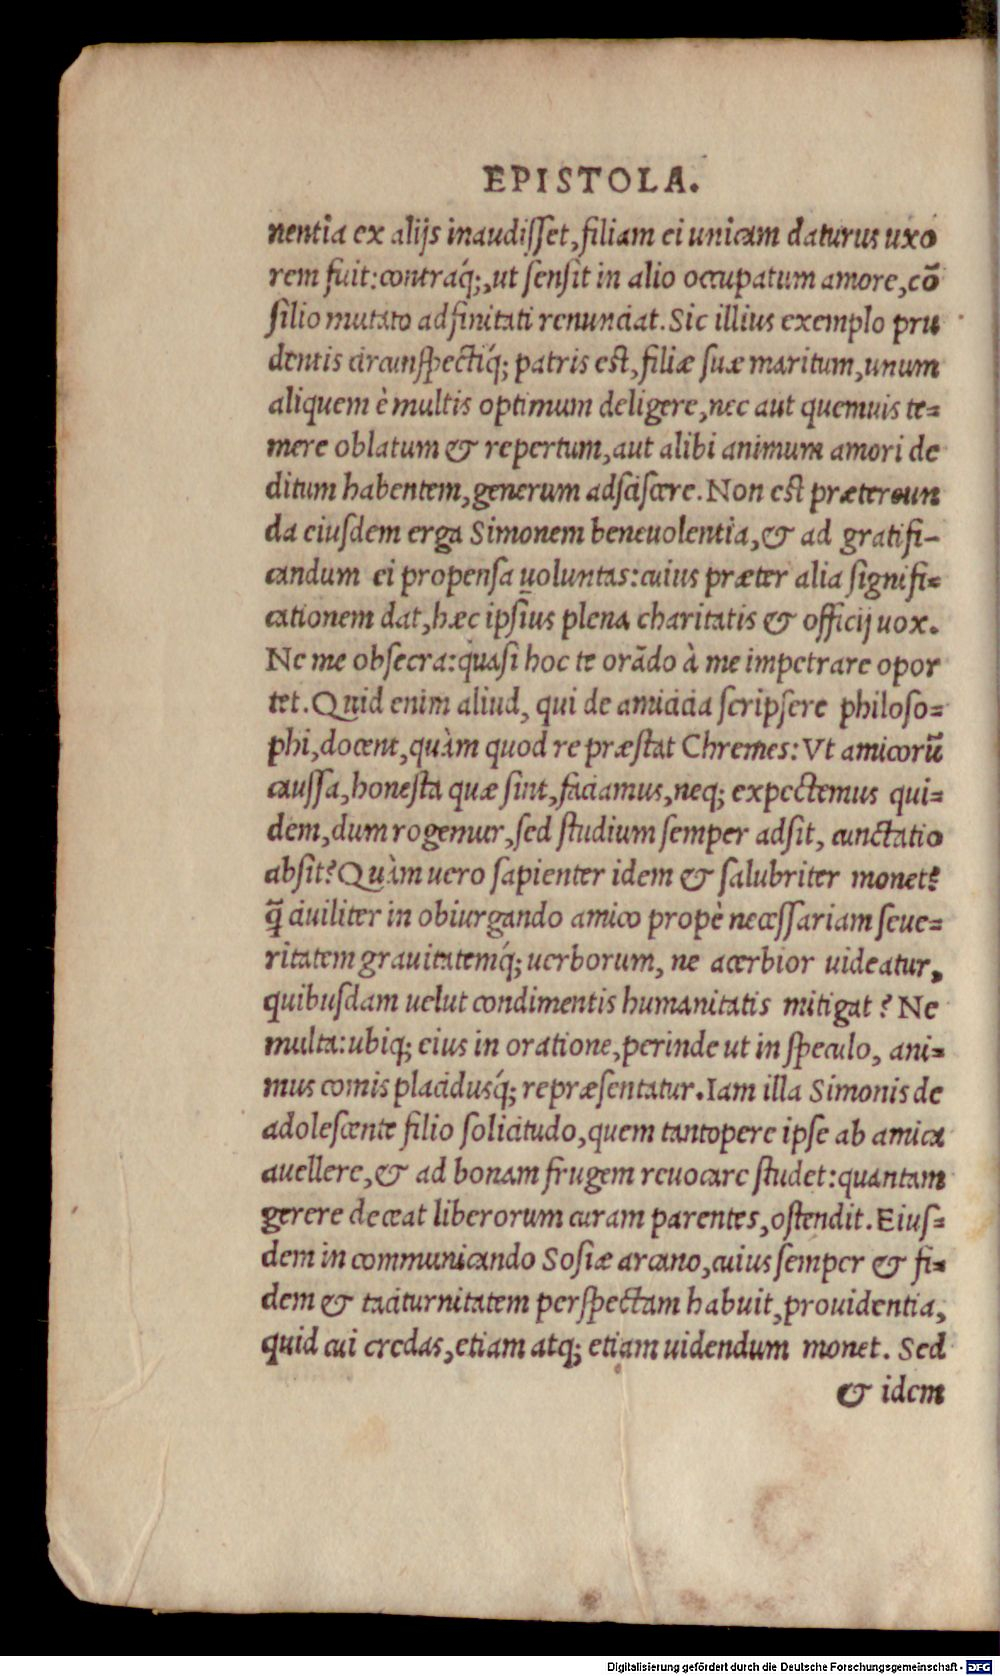 EPISTOLA.
nentia ex alijs inaudisſet, filiam ei unicam daturus uxo
rem fuit: contraq́;, ut ſenſit in alio occupatum amore, cõ
ſilio mutato adfinitati renunciat. Sic illius exemplo pru
dentis circunſpectiq́; patris est, filiæ ſuæ maritum, unum
aliquem è multis optimum deligere, nec aut quemuis te=
mere oblatum & repertum, aut alibi animum amori de
ditum habentem, generum adſciſcere. Non est prætereun
da eiuſdem erga Simonem beneuolentia, & ad gratifi-
candum ei propenſa uoluntas: cuius præter alia ſignifi=
cationem dat, hæc ipſius plena charitatis & officij uox.
Ne me obſecra: quaſi hoc te orãdo à me impetrare opor
tet. Quid enim aliud, qui de amicicia ſcripſere philoſo=
phi, docent, quàm quod repræſtat Chremes: Vt amicorũ
cauſſa, honeſta quæ ſint, faciamus, neq; expectemus qui=
dem, dum rogemur, ſed ſtudium ſemper adſit, cunctatio
abſit? Quàm uero ſapienter idem & ſalubriter monet?
q̃ ciuiliter in obiurgando amico propè neceſſariam ſeue=
ritatem grauitatemq́; uerborum, ne acerbior uideatur,
quibuſdam uelut condimentis humanitatis mitigat? Ne
multa: ubiq; eius in oratione, perinde ut in ſpeculo, ani=
mus comis placidusq́; repræſentatur. Iam illa Simonis de
adoleſcente filio ſolicitudo, quem tantopere ipſe ab amica
auellere, & ad bonam frugem reuocare ſtudet: quantam
gerere deceat liberorum curam parentes, oſtendit. Eiuſ=
dem in communicando Soſiæ arcano, cuius ſemper & fi=
dem & taciturnitatem perſpectam habuit, prouidentia,
quid cui credas, etiam atq; etiam uidendum monet. Sed
& idem
Digitalisierung gefördert durch die Deutsche Forschungsgemeinschaft - DFG